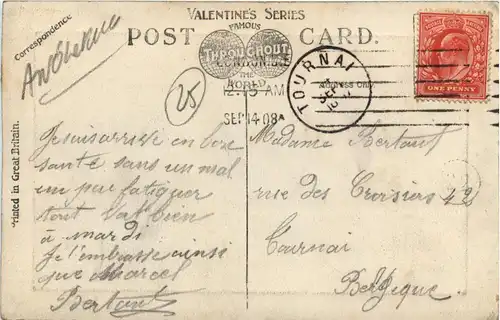 VALENTINE'S SERIES
FAMOUS
THROUGHOUT
THE
WORLD
POST CARD.
Correspondence
Address Only
Printed in Great Britain.
25
12.15 AM
SEP 14 08
TOURNAI
ONE PENNY
J'suis arrivé en bone
santé sans un mal
um peu fatiguer
tout va bien
à mardi
Je l'embrasse ainsi
que Marcel
Bertaut
Madame Bertaut
rue des Croisiers 42
Tournai
Belgique